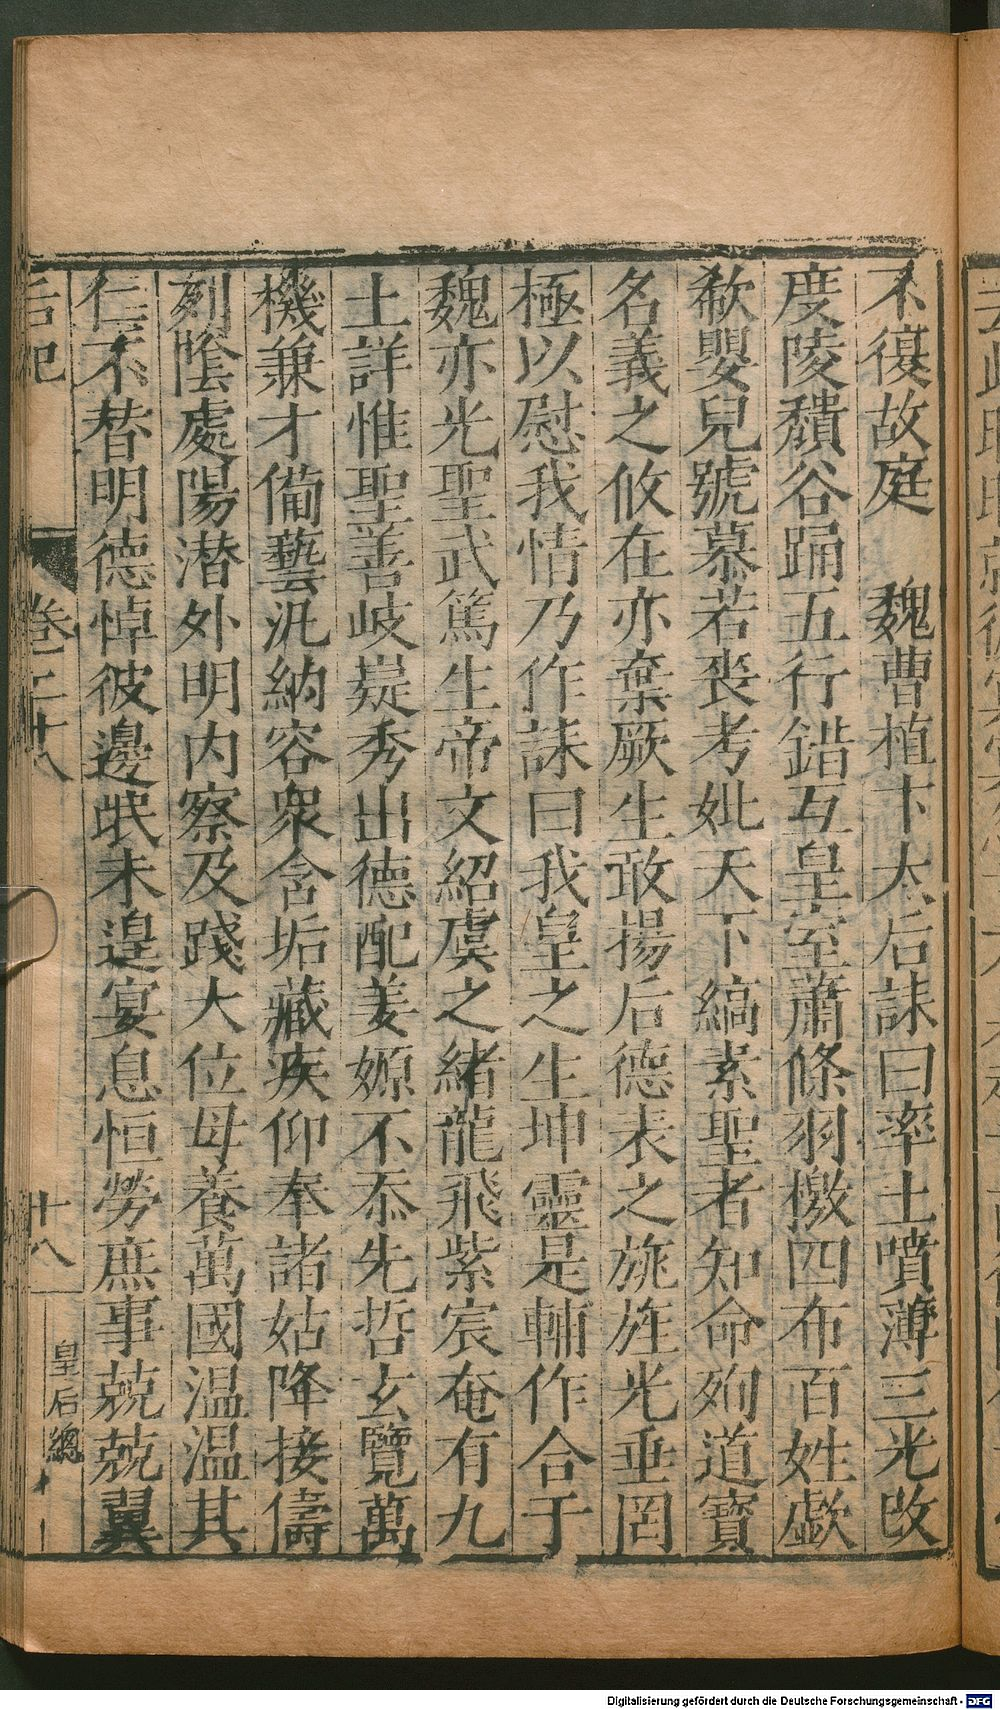 不復故庭　魏曹植卞太后誄曰率土噴薄三光改
度陵頽谷踊五行錯互皇室蕭條羽檄四布百姓歔
欷嬰兒號慕若喪考妣天下縞素聖者知命殉道寳
名義之攸在亦棄厥生敢揚后德表之旐旌光垂罔
極以慰我情乃作誄曰我皇之生坤靈是輔作合于
魏亦光聖武篤生帝文紹虞之緒龍飛紫宸奄有九
土詳惟聖善岐嶷秀出德配姜嫄不忝先哲玄覽萬
機兼才備藝汎納容衆含垢藏疾仰奉諸姑降接儔
列陰處陽潜外明内察及踐大位母養萬國温温其
仁不替明德悼彼邊氓未遑宴息恒勞庶事兢兢翼
后妃
卷二十八
十八
皇后總
Digitalisierung gefördert durch die Deutsche Forschungsgemeinschaft - DFG